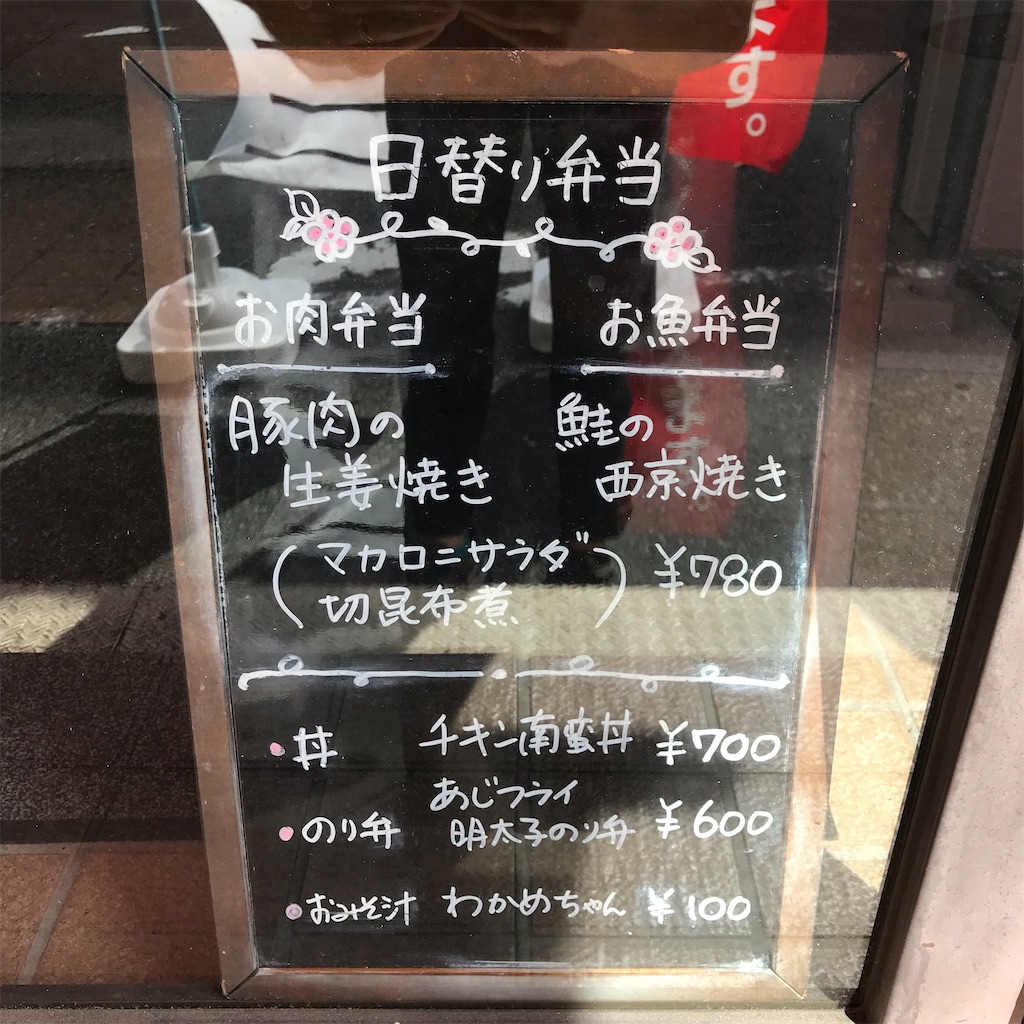 ます。
日替り弁当
お肉弁当
豚肉の
生姜焼き
お魚弁当
鮭の
西京焼き
(マカロニサラダ
切昆布煮) ¥780
・丼 チキン南蛮丼 ¥700
・のり弁 あじフライ
明太子のり弁 ¥600
・おみそ汁 わかめちゃん ¥100